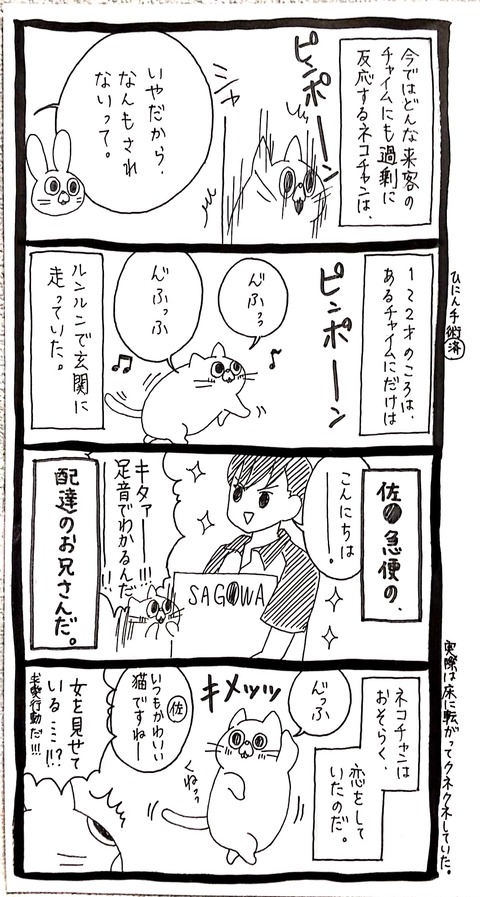 今ではどんな来客の
チャイムにも過剰に
反応するネコチャンは、
ピンポーン
ミシャ
いやだから、
なんもされ
ないって。
ひにん手術済
1~2才のころは、
あるチャイムにだけは
ピンポーン
んふっっ
んふっふ
ルンルンで玄関に
走っていた。
佐●急便の、
こんにちは。
SAGOWA
キタァーー!!!
足音でわかるんだ
!!
配達のお兄さんだ。
実際は床に転がってクネクネしていた。
ネコチャンは
おそらく、
恋をして
いたのだ。
んっふ
キメッッ
くねっっ
佐
いつもかわいい
猫ですねー
女を見せて
いる……!?
!!!
求愛行動だ!!!